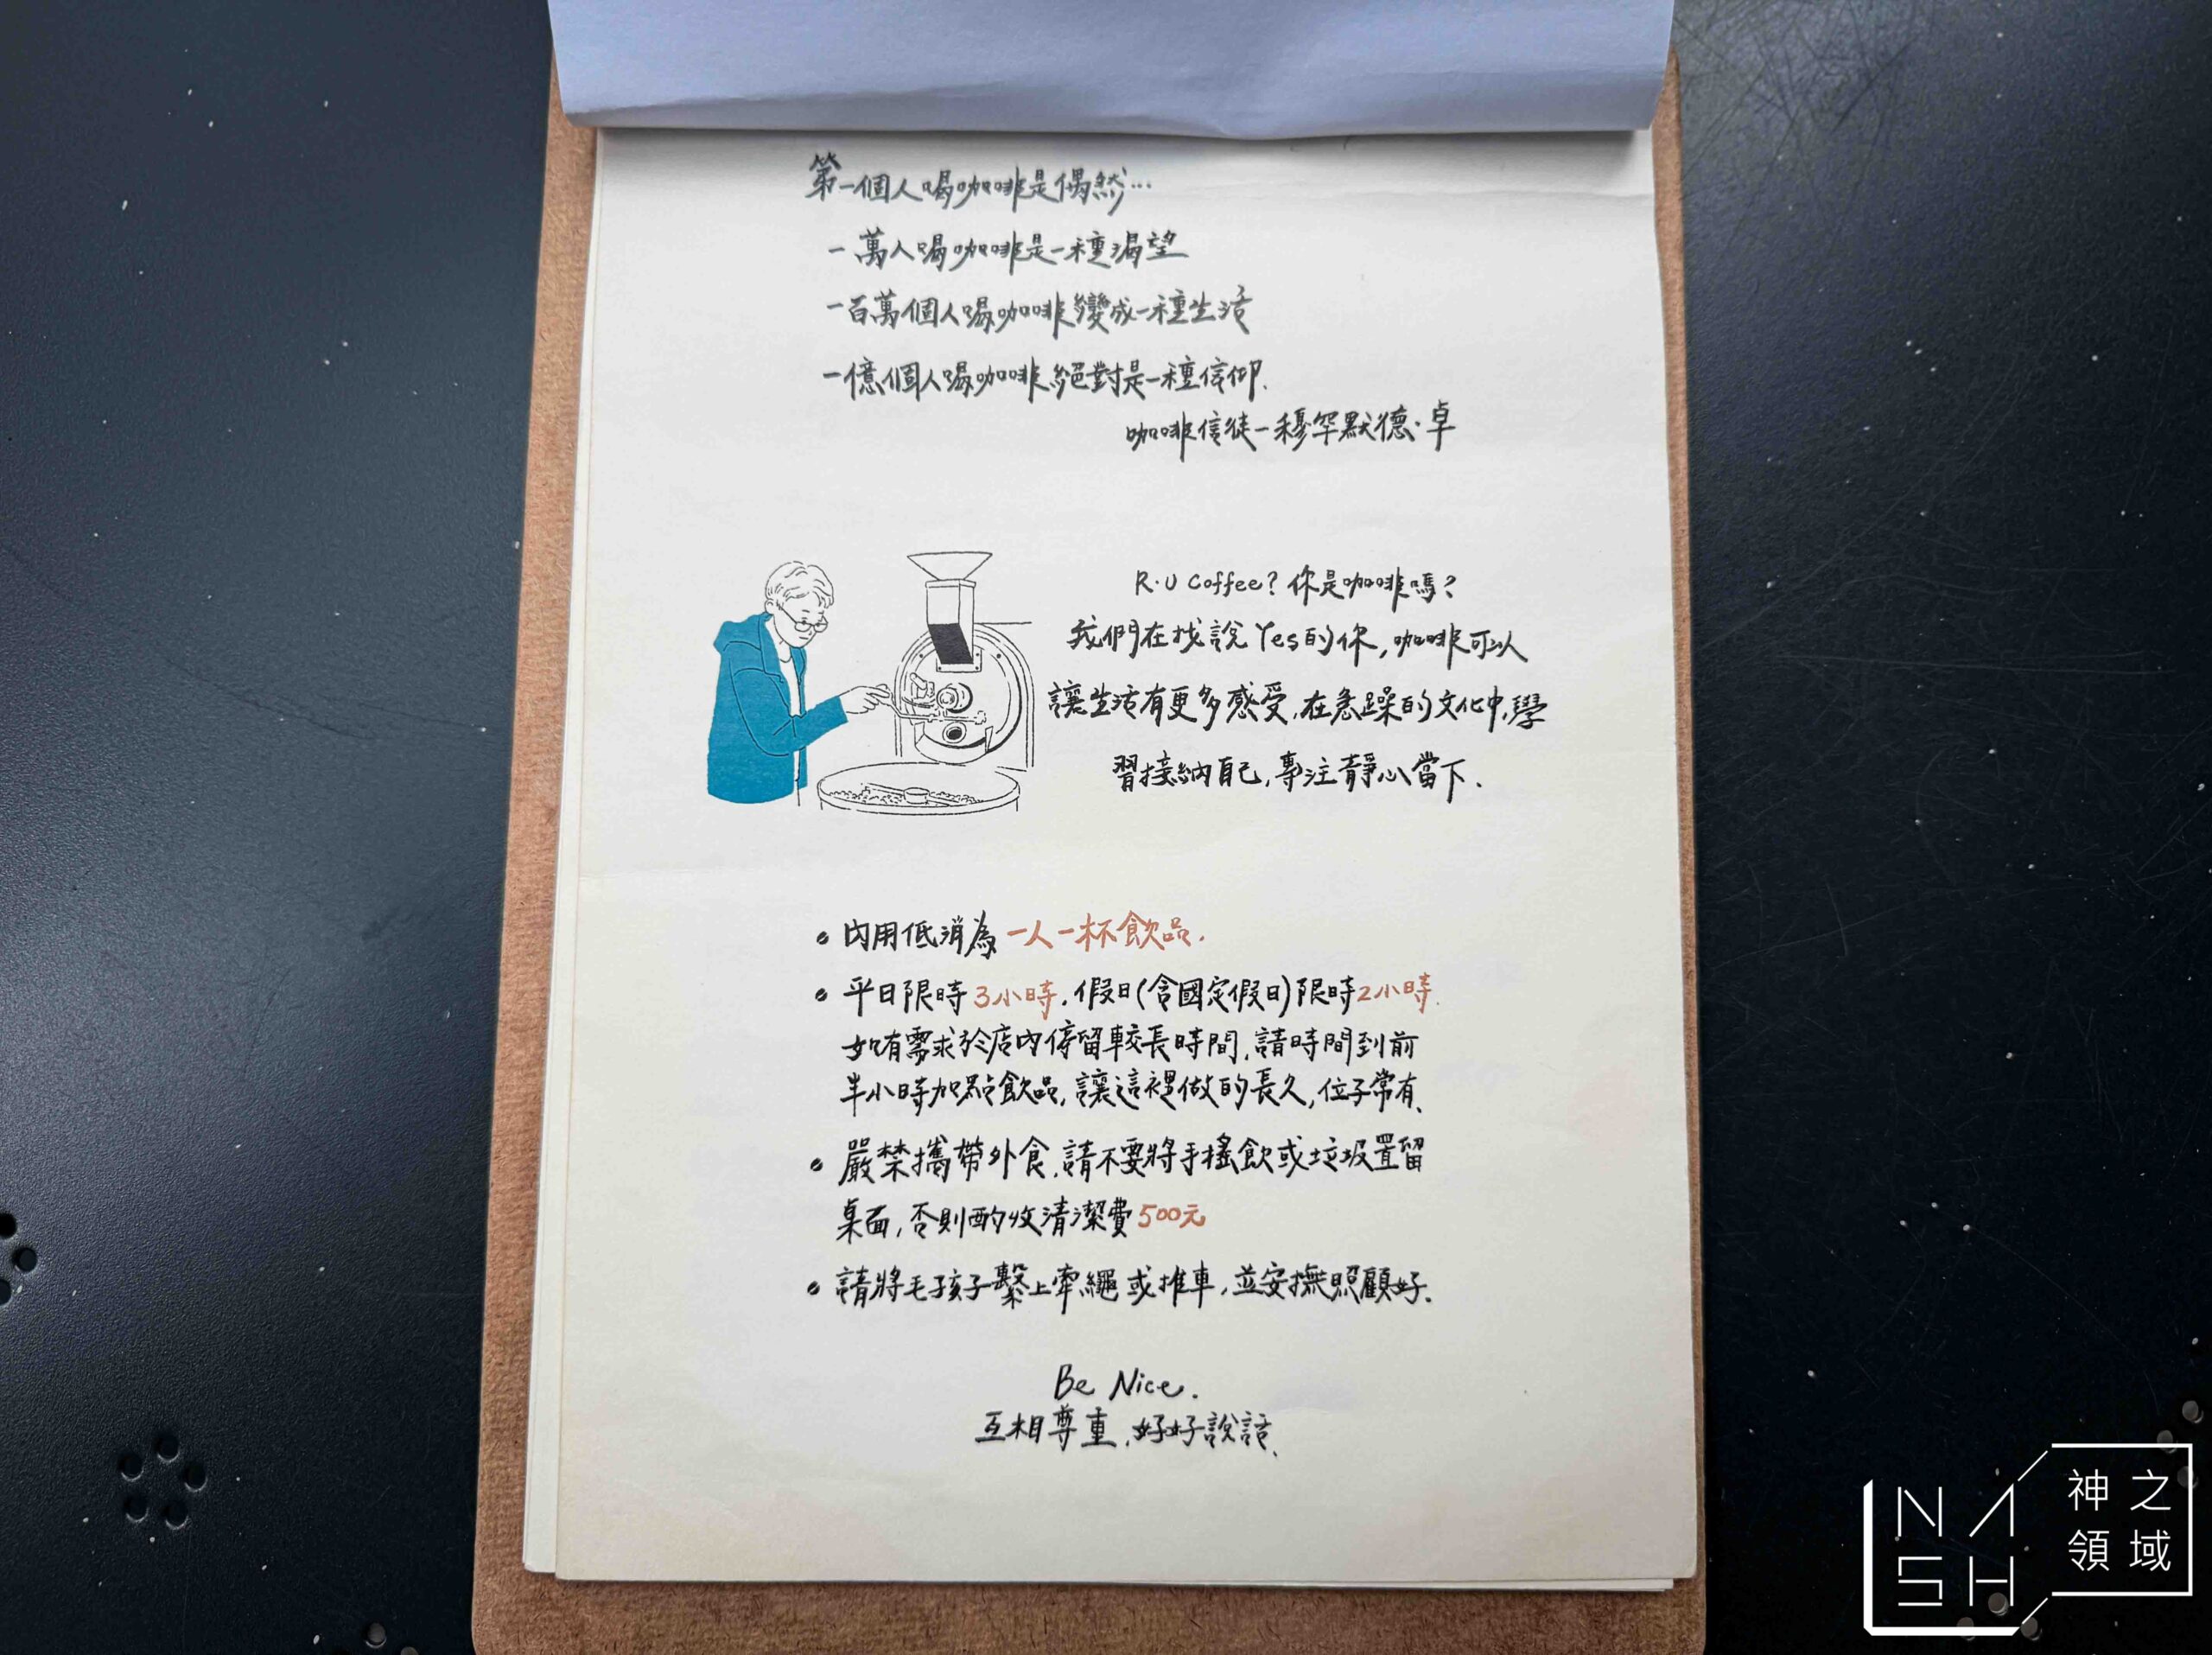 第一個人喝咖啡是偶然…
一萬人喝咖啡是一種渴望
一百萬個人喝咖啡變成一種生活
一億個人喝咖啡絕對是一種信仰.
咖啡信徒-穆罕默德·卓
R·U Coffee? 你是咖啡嗎?
我們在找說Yes的你,咖啡可以
讓生活有更多感受.在急躁的文化中,學
習接納自己,專注靜心當下.
• 內用低消為一人一杯飲品.
• 平日限時3小時.假日(含國定假日)限時2小時.
如有需求於店內停留較長時間,請時間到前
半小時加點飲品,讓這裡做的長久,位子常有、
• 嚴禁攜帶外食.請不要將手搖飲或垃圾置留
桌面,否則酌收清潔費500元
• 請將毛孩子繫上牽繩或推車,並安撫照顧好.
Be Nice.
互相尊重.好好說話、
NASH
神之
領域